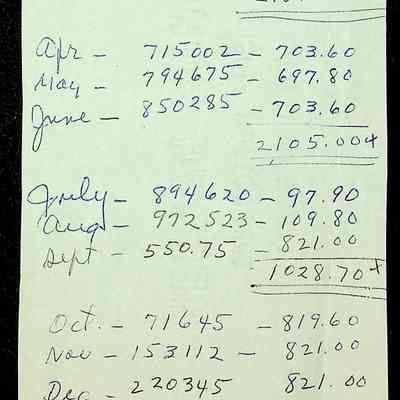 Apr - 715002 - 703.60
May - 794675 - 697.80
June - 850285 - 703.60
2105.00+
July - 894620 - 97.90
Aug - 972523 - 109.80
Sept - 550.75 - 821.00
1028.70+
Oct. - 71645 - 819.60
Nov - 153112 - 821.00
Dec - 220345 821.00